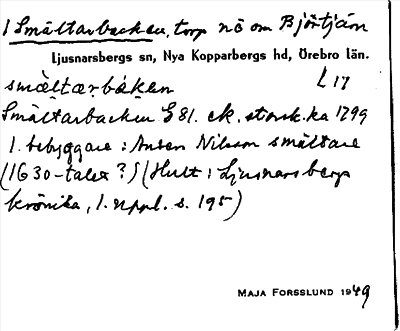 1 Smältarbacken, torp nö om Björtjärn
Ljusnarsbergs sn, Nya Kopparbergs hd, Örebro län.
smæ̀ltærbáken L 17
Smältarbacken E 81. ek. storsk.ka 1799
1. bebyggare: Anders Nilsson smältare
(1630-talet?) (Hult: Ljusnarsbergs
krönika, 1. uppl. s. 195)
MAJA FORSSLUND 1949